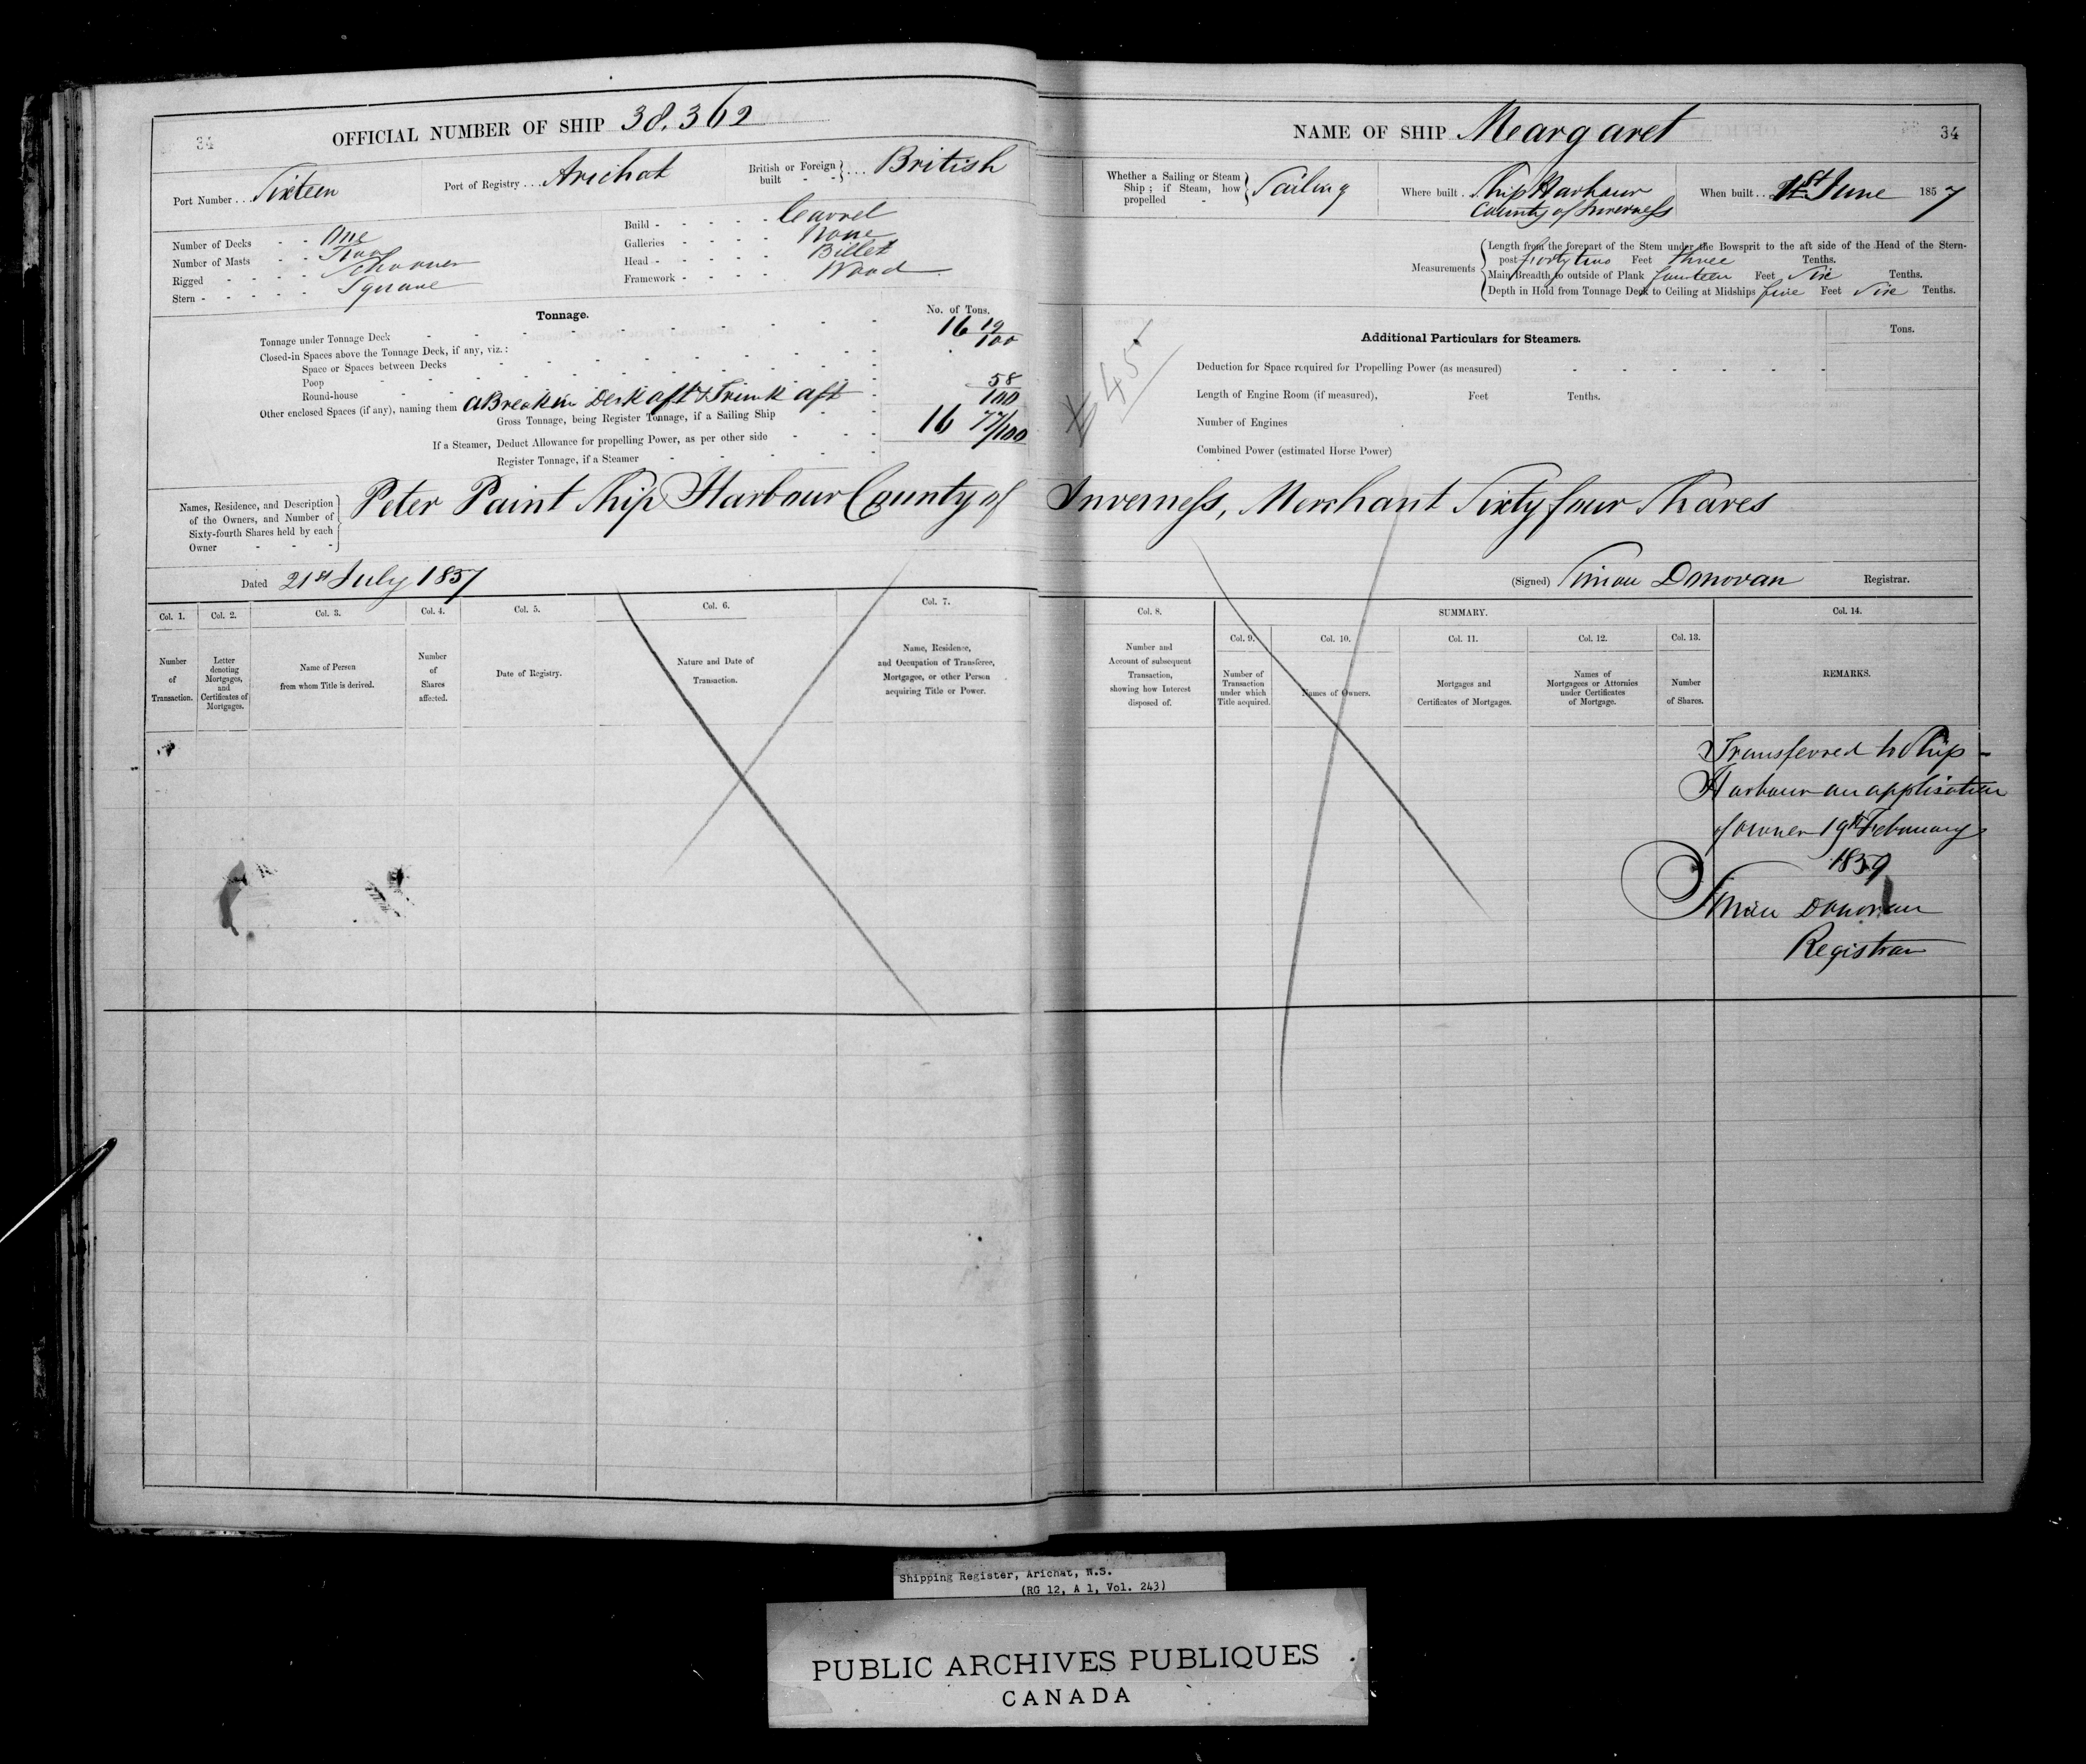 34
OFFICIAL NUMBER OF SHIP 38.362
Port Number . . . Sixteen
Port of Registry . . . Arichat
British or Foreign built - - } . . . British
Number of Decks - - - One
Number of Masts - - - Two
Rigged - - - - Schooner
Stern - - - - - Square
Build - - - - - Carvel
Galleries - - - - None
Head - - - - - Billet
Framework - - - - Wood
Tonnage.
No. of Tons.
Tonnage under Tonnage Deck 16 19/100
Closed-in Spaces above the Tonnage Deck, if any, viz.:
Space or Spaces between Decks
Poop
Round-house
Other enclosed Spaces (if any), naming them A Break in Deck aft & Trunk aft 58/100
Gross Tonnage, being Register Tonnage, if a Sailing Ship 16 77/100
If a Steamer, Deduct Allowance for propelling Power, as per other side
Register Tonnage, if a Steamer
Names, Residence, and Description
of the Owners, and Number of
Sixty-fourth Shares held by each
Owner - - -
Peter Paint Ship Harbour County of Inverness, Merchant Sixty four Shares
Dated 21st July 1857
Col. 1. Col. 2. Col. 3. Col. 4. Col. 5. Col. 6. Col. 7.
Number
of
Transaction.
Letter
denoting
Mortgages,
and
Certificates of
Mortgages.
Name of Person
from whom Title is derived.
Number
of
Shares
affected.
Date of Registry.
Nature and Date of
Transaction.
Name, Residence,
and Occupation of Transferee,
Mortgagee, or other Person
acquiring Title or Power.
NAME OF SHIP Meargaret
34
Whether a Sailing or Steam
Ship; if Steam, how
propelled -
Sailing
Where built . . Ship Harbour
County of Inverness
When built . . . 1st June 1857
Measurements
Length from the forepart of the Stem under the Bowsprit to the aft side of the Head of the Stern-
post forty two Feet three Tenths.
Main Breadth to outside of Plank fourteen Feet Six Tenths.
Depth in Hold from Tonnage Deck to Ceiling at Midships five Feet Six Tenths.
45
Additional Particulars for Steamers.
Tons.
Deduction for Space required for Propelling Power (as measured)
Length of Engine Room (if measured), Feet Tenths.
Number of Engines
Combined Power (estimated Horse Power)
(Signed) Simon Donovan Registrar.
Col. 8. SUMMARY. Col. 14.
Col. 9. Col. 10. Col. 11. Col. 12. Col. 13.
Number and
Account of subsequent
Transaction,
showing how Interest
disposed of.
Number of
Transaction
under which
Title acquired.
Names of Owners.
Mortgages and
Certificates of Mortgages.
Names of
Mortgagees or Attornies
under Certificates
of Mortgage.
Number
of Shares.
REMARKS.
Transferred to Ship -
Harbour on application
of owner 19th February
1859
Simon Donovan
Registrar
Shipping Register, Arichat, N.S.
(RG 12, A 1, Vol. 243)
PUBLIC ARCHIVES PUBLIQUES
CANADA